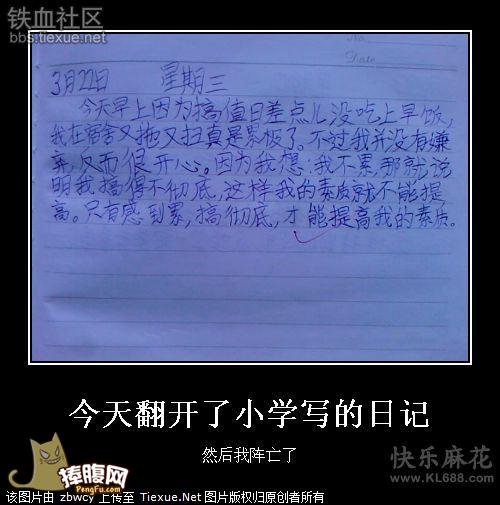 铁血社区
bbs.tiexue.net
No.
Date
3月22日 星期三
今天早上因为搞值日差点儿没吃上早饭,
我在宿舍又拖又扫真是累极了。不过我并没有嫌
弃,反而很开心。因为我想:我不累,那就说
明我搞得不彻底,这样我的素质就不能提
高。只有感到累,搞彻底,才能提高我的素质。
今天翻开了小学写的日记
然后我阵亡了
捧腹网
PengFu.com
快乐麻花
www.KL688.com
该图片由 zbwcy 上传至 Tiexue.Net 图片版权归原创者所有